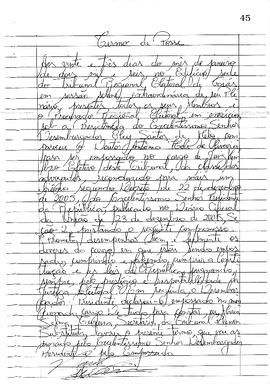 45
Termo de Posse
Aos vinte e três dias do mês de janeiro
de dois mil e seis, no Edifício sede
do Tribunal Regional Eleitoral de Goiás
em sessão solene extraordinária de seu Ple
nário, presentes todos os seus Membros e
o Procurador Regional Eleitoral, em exercício,
sob a Presidência do Excelentíssimo Senhor
Desembargador Elcy Santos de Melo, com
pareceu o Doutor Antônio de Oliveira
para ser empossado no cargo de
Efetivo deste Tribunal, da classe dos
advogados, reconduzido para mais um
biênio, segundo Decreto de 22 de dezembro
de 2005, do Excelentíssimo Senhor Presidente
da República, publicado no Diário Oficial
da União de 23 de dezembro de 2005, Se
ção 2, prestando o seguinte compromisso:
Prometo desempenhar bem e fielmente os
deveres do cargo em que estou sendo empos
sado, cumprindo e fazendo cumprir a Consti
tuição e as leis da República, pugnando
sempre pelo prestígio e respeitabilidade da
Justiça Eleitoral. Em seguida, o Desembar
gador Presidente declarou-o empossado no
cargo. Do que, para constar, eu,
Secretária do Tribunal Pleno
Substituta, lavrei o presente termo, que vai as
sinado pelo Excelentíssimo Senhor Desembargador
Presidente e pelo